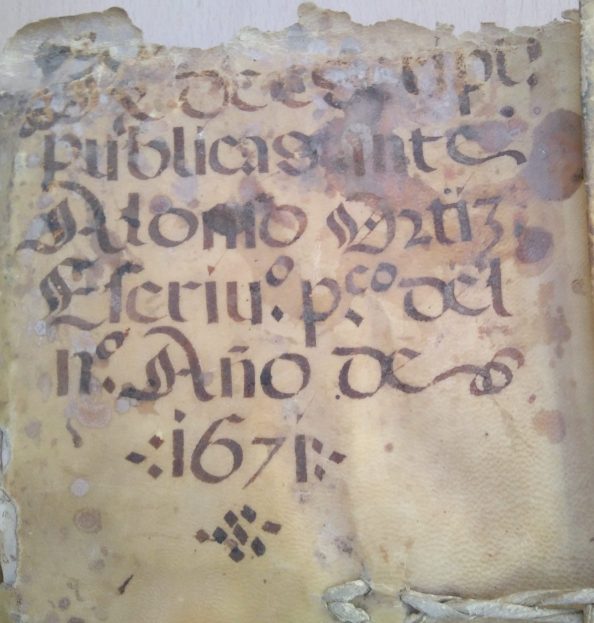 de escrip.
publicas ante
Alonso Ortiz
Escriu.º p.co del
n.º Año de
1671